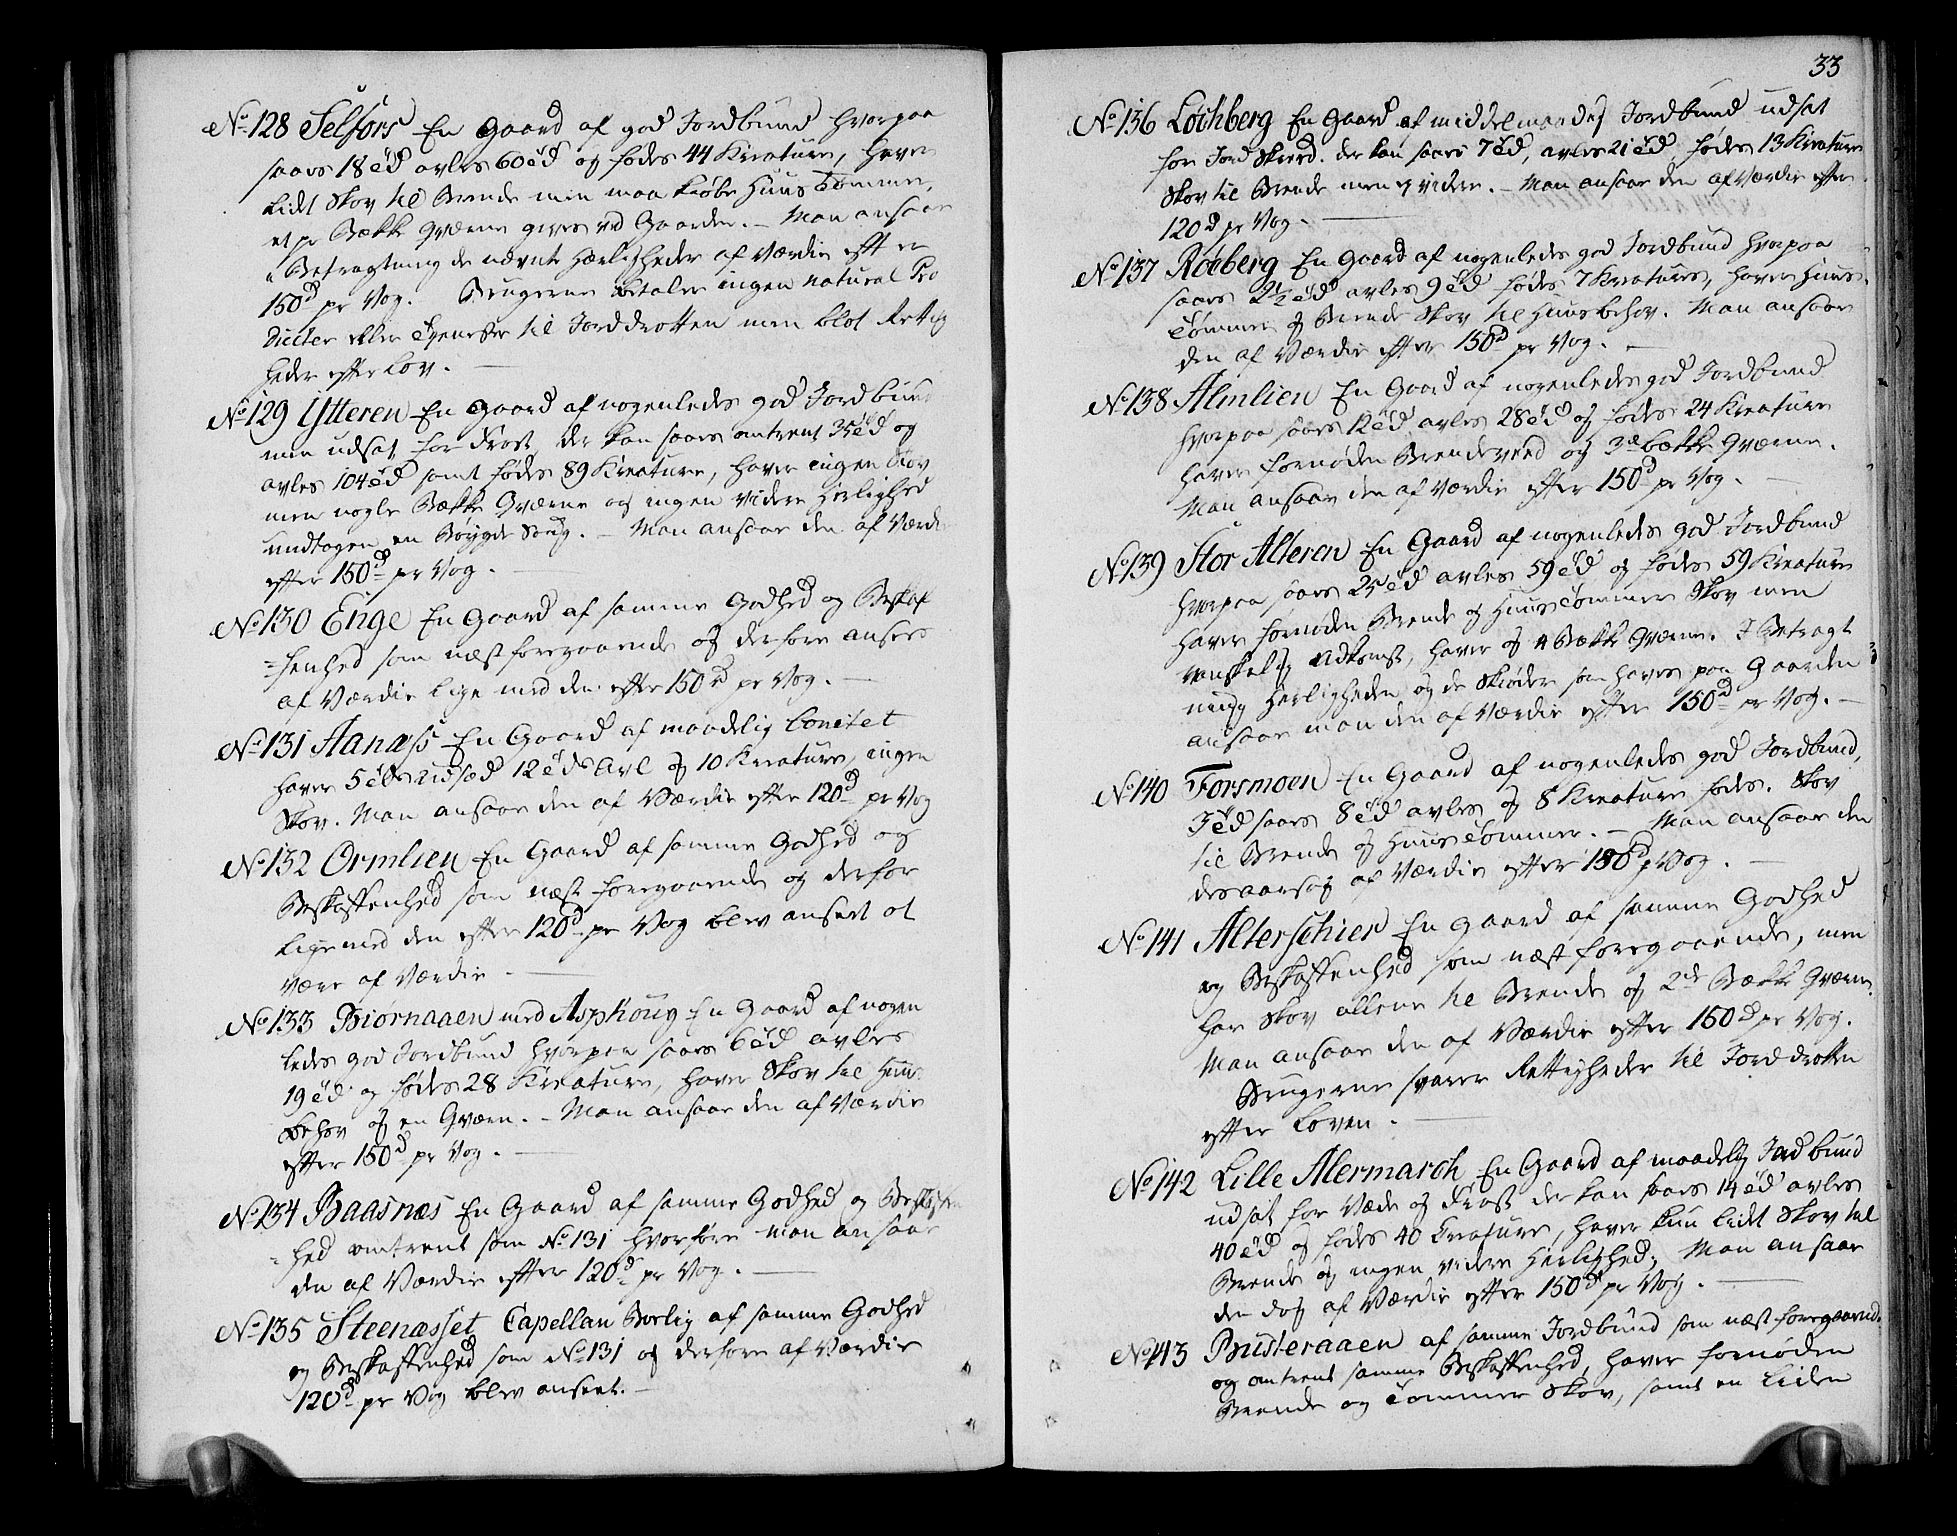 No 128 Selfors En Gaard af god Jordbund hvorpaa
saaes 18 td avles 60 td og fødes 44 Kreature, haver
lidt Skov til Brende men maa kiøbe Huus Tømmer,
et pr Bække Qværne gives ved Gaarden. – Man ansaae
i Betragtning de nævnte Herligheder af Værdie efter
150d pr Vog. Brugerne betaler ingen natural Pro
ducter eller Tjeneste til Jorddrotten men blot Rettig
heder efter Lov. –
No 129 Ytteren En Gaard af nogenledes god Jordbund
men udsat for Frost, der kan saaes omtrent 35 td og
avles 104 td samt fødes 89 Kreature, haver ingen Skov
men nogle Bække Qværne og ingen videre Herlighed
undtagen en Bøygde Saug. – Man ansaae den af Værdie
efter 150d pr Vog. –
No 130 Enge En Gaard af samme Godhed og Beskaf
=fenhed som næstforegaaende og derfore ansees
af Værdie lige med den efter 150d pr Vog. –
No 131 Aanæss En Gaard af maadelig bonitet
haver 5 tds Udsæd 12 tds Avl og 10 Kreature, ingen
Skov. Man ansaae den af Værdie efter 120d pr Vog
No 132 Ormlien En Gaard af samme Godhed og
Beskaffenhed som næst foregaaende og derfor
lige med den efter 120d pr Vog blev anseet at
være af Værdie. –
No 133 Biørnaaen med Asphoug En Gaard af nogen
ledes god Jordbund hvorpaa saaes 6 td avles
19 td og fødes 28 Kreature, haver Skov til Huus
behov og en Qværn. – Man ansaae den af Værdie
efter 150d pr Vog. –
No 134 Baasnæs En Gaard af samme Godhed og Beskaffen
=hed omtrent som No 131 hvorfore man ansaae
den af Værdie efter 120d pr Vog. –
No 135 Steenæsset Capellan Boelig af samme Godhed
og Beskaffenhed som No 131 og derfore af Værdie
120d pr Vog blev anseet. –
33
No 136 Løchberg En Gaard af middelmaadig Jordbund udsat
for Jord Skreed. der kan saaes 7 td, avles 21 td, fødes 13 Kreature
Skov til Brende men ey videre. – Man ansaae den af Værdie efter
120d pr Vog. –
No 137 Røeberg En Gaard af nogenledes god Jordbund hvorpaa
saaes 2½ td avles 9 td fødes 7 Kreature, haver Huus
Tømmer og Brende Skov til Huusbehov. Man ansaae
den af Værdie efter 150d pr Vog. –
No 138 Almlien En Gaard af nogenledes god Jordbund
hvorpaa saaes 12 td avles 28 td og fødes 24 Kreature
haver fornøden Brendeveed og 3de bække Qværne.
Man ansaae den af Værdie efter 150d pr Vog. –
No 139 Stor Alteren En Gaard af nogenledes god Jordbund
hvorpaa saaes 25 td avles 59 td og fødes 59 Kreature
haver fornøden Brende og Huustømmer Skov men
vanskelig Udkomst, haver og 4 Bække Qværne. I Betragt
ning Herligheden og de Skiøder som haves paa Gaarden
ansaae man den af Værdie efter 150d pr Vog. –
No 140 Forsmoen En Gaard af nogenledes god Jordbund,
3 td saaes 8 td avles og 8 Kreature fødes. Skov
til Brende og Huustømmer. – Man ansaae den
desaarsag af Værdie efter 150d pr Vog. –
No 141 Alterschier En Gaard af samme Godhed
og Beskaffenhed som næst foregaaende, men
har Skov allene til Brende og 2de Bække Qværne.
Man ansaae den af Værdie efter 150d pr Vog.
Brugerne svarer Rettigheder til Jorddrotten
efter Loven. –
No 142 Lille Alermarch En Gaard af maadelig Jordbund
udsat for Væde og Frost der kan saaes 14 td avles
40 td og fødes 40 Creature, haver kun lidt Skov til
Brende og ingen videre Herlighed; Man ansaae
den dog af Værdie efter 150d pr Vog. –
No 143 Busteraaen af samme Jordbund som næst foregaaende
og omtrent samme Beskaffenhed, haver fornøden
Brende og Tømmer Skov, samt en liden